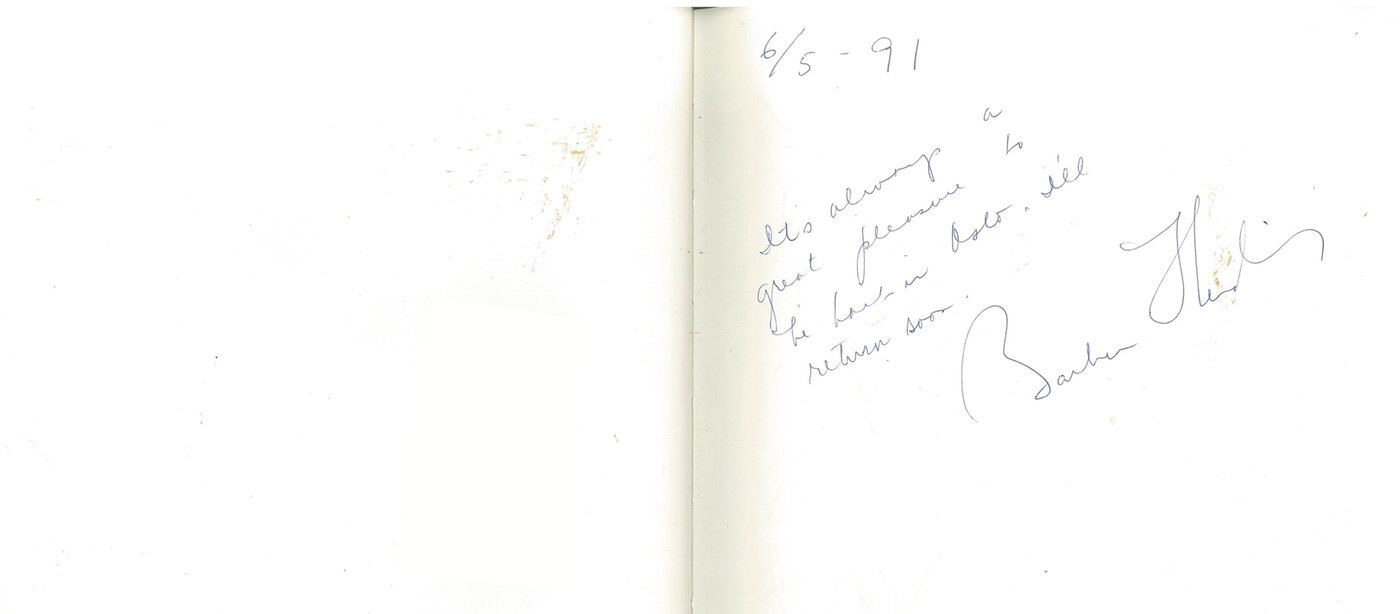 6/5 - 91
It's always a
great pleasure to
be back in Oslo. I'll
return soon.
Barbara Hendricks